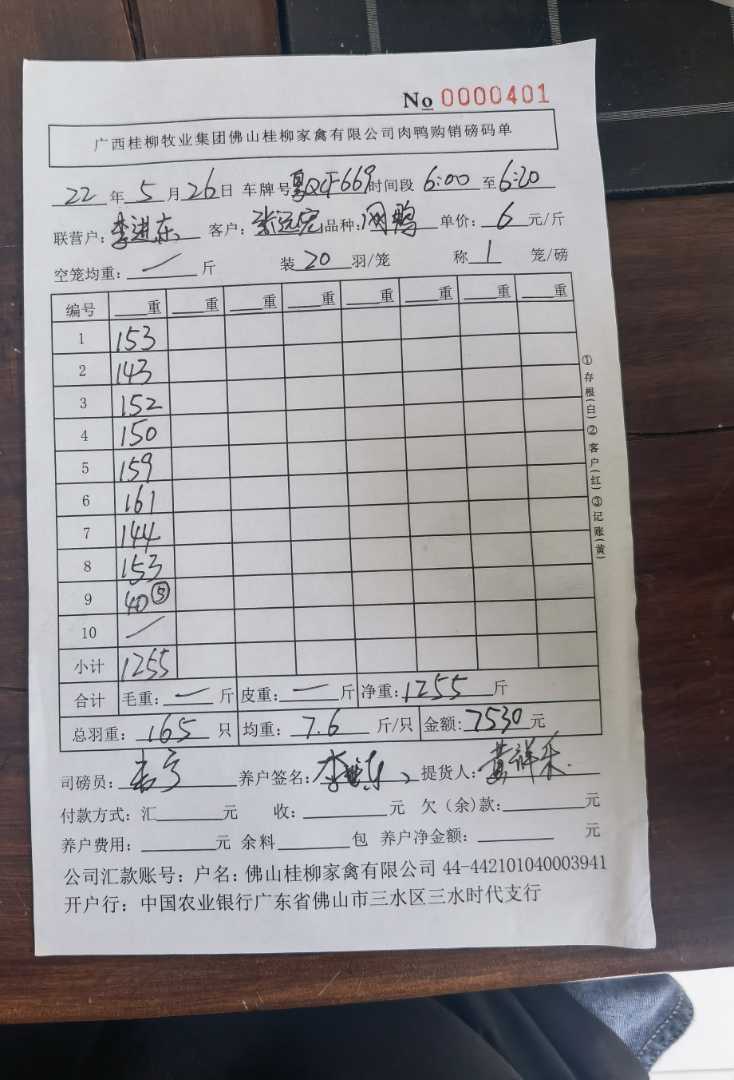 No 0000401
广西桂柳牧业集团佛山桂柳家禽有限公司肉鸭购销磅码单
22年5月26日 车牌号粤QCF669时间段6:00至6:20
联营户:李进东 客户:张远宏 品种:鸭 单价:6元/斤
空笼均重:/斤 装20羽/笼 称1笼/磅
编号 重 重 重 重 重 重 重 重
1 153
2 143
3 152
4 150
5 159
6 161
7 144
8 153
9 40⑤
10 /
小计 1255
合计 毛重:/斤 皮重:/斤 净重:1255斤
总羽重:165只 均重:7.6斤/只 金额:7530元
司磅员: 养户签名:李进东 提货人:黄祥禾
付款方式:汇元 收:元 欠(余)款:元
养户费用:元 余料包 养户净金额:元
公司汇款账号:户名:佛山桂柳家禽有限公司 44-442101040003941
开户行:中国农业银行广东省佛山市三水区三水时代支行
①存根(白)②客户(红)③记账(黄)